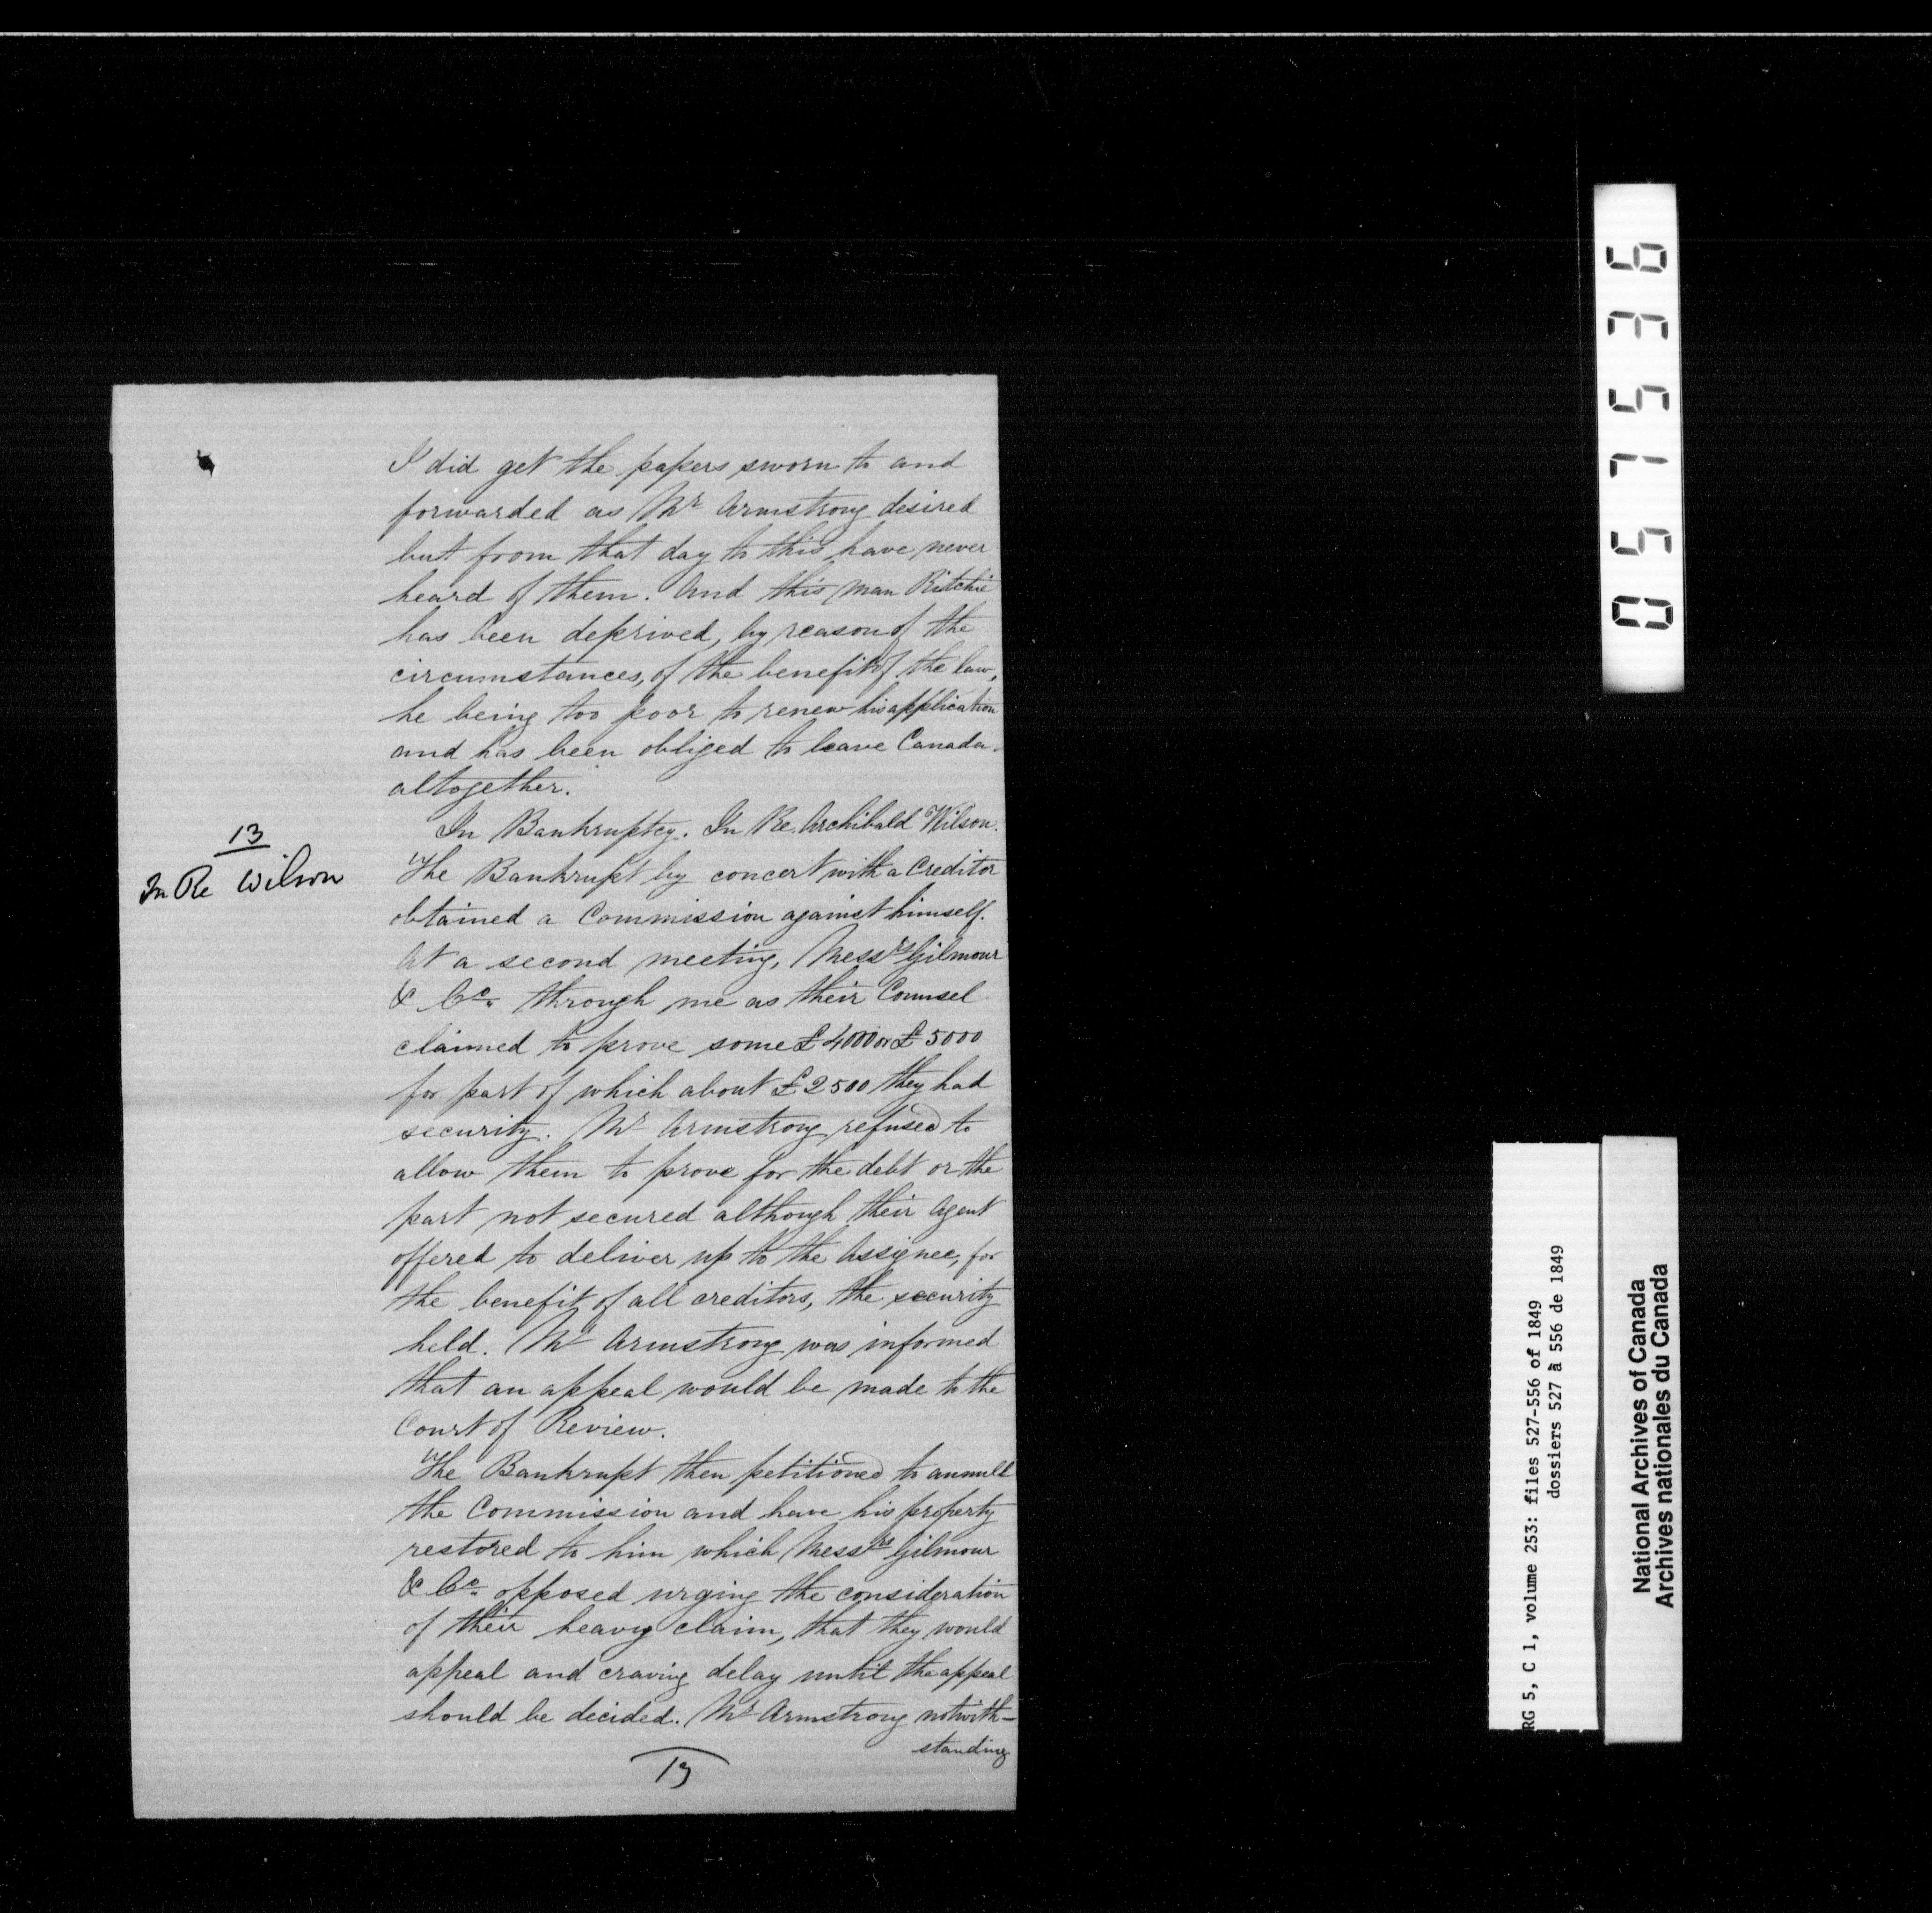 I did get the papers sworn to and
forwarded as Mr Armstrong desired
but from that day to this have never
heard of them. And this man Ritchie
has been deprived, by reason of the
circumstances, of the benefit of the law,
he being too poor to renew his application
and has been obliged to leave Canada.
altogether.
13
In Re Wilson
In Bankruptcy. In Re. Archibald Wilson.
The Bankrupt by concert with a Creditor
obtained a Commission against himself.
At a second meeting, Messrs Gilmour
& Co. through me as their Counsel
claimed to prove some £4000 or £5000
for part of which about £2500 they had
security. Mr Armstrong refused to
allow them to prove for the debt or the
part not secured although their Agent
offered to deliver up to the Assignee, for
the benefit of all creditors, the security
held. Mr Armstrong was informed
that an appeal would be made to the
Court of Review.
The Bankrupt then petitioned to annull
the Commission and have his property
restored to him which Messrs Gilmour
& Co. opposed urging the consideration
of their heavy claim, that they would
appeal and craving delay until the appeal
should be decided. Mr Armstrong notwith-
standing
13
057536
RG 5, C 1, volume 253: files 527-556 of 1849
dossiers 527 à 556 de 1849
National Archives of Canada
Archives nationales du Canada